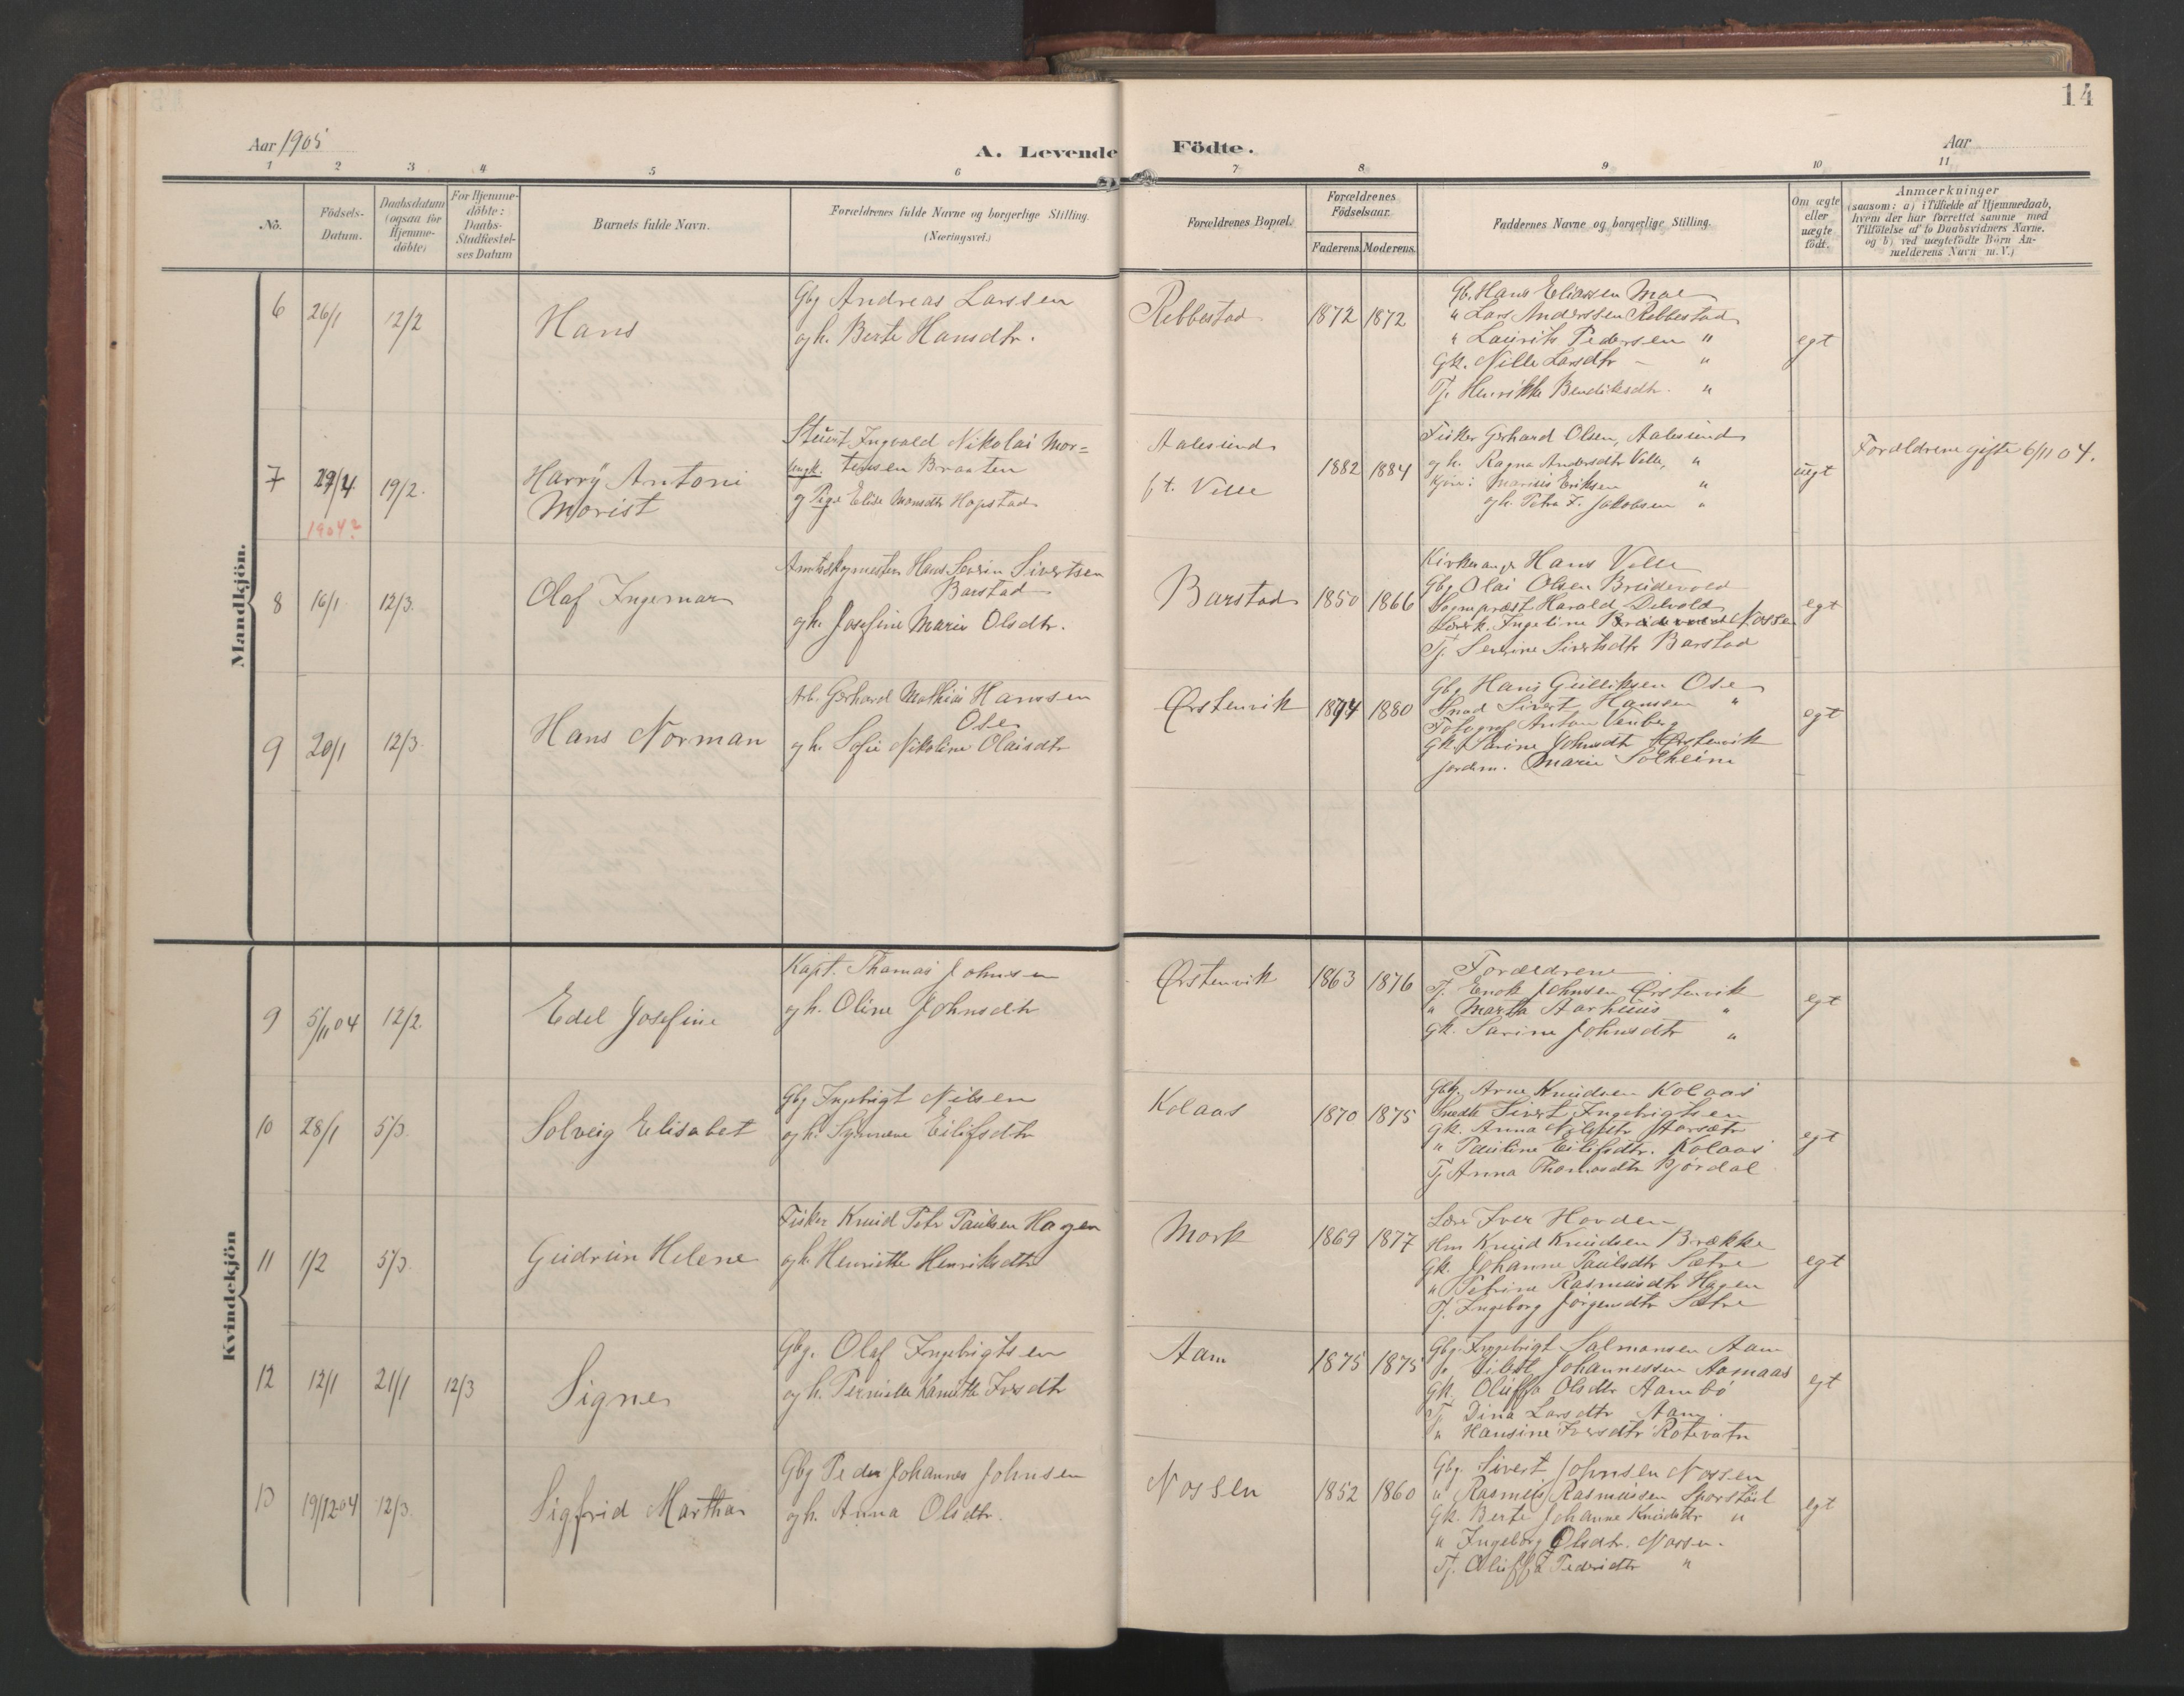 14
Aar 1905
A. Levende Födte.
Aar
1 2 3 4 5 6 7 8 9 10 11
No.
Födsels-
Datum.
Daabsdatum
(ogsaa for
Hjemme-
döbte)
For Hjemme-
döbte:
Daabs-
Stadfæstel-
ses Datum
Barnets fulde Navn.
Forældrenes fulde Navne og borgerlige Stilling.
(Næringsvei.)
Forældrenes Bopæl.
Forældrenes
Födselsaar.
Faderens. Moderens.
Faddernes Navne og borgerlige Stilling.
Om ægte
eller
uægte
födt.
Anmærkninger
(saasom: a) i Tilfælde af Hjemmedaab,
hvem der har forrettet samme med
Tilföielse af to Daabsvidners Navne.
og b) ved uægtefödte Börn An-
melderens Navn m. V.)
Mandkjön.
6 26/1 12/2
Hans
Gbg Andreas Larssen
og h. Berte Hansdtr.
Rebbestad
1872 1872
Gb. Hans Eliassen Moe
" Lars Anderssen Rebbestad
" Laurits Pedersen "
Gk. Nille Larsdtr - "
Tj. Henrikke Bendiksdtr. "
egt
7 29/4 19/2.
1904?
Harry Antoni
Morist
Stuert Ingvald Nikolai Mor=
ungk. tensen Braaten
og Pige Elise Monsdtr Hopstad
Aalesund
p. t. Velle
1882 1884
Fisker Gerhard Olsen, Aalesund
og h. Ragna Andersdtr Velle, "
Marius Eriksen "
og h. Petra F. Jakobsen "
uegt
Forældrene gifte 6/11 04.
8 16/1 12/3.
Olaf Ingemar
Amtsskogmester Hans Severin Sivertsen
Barstad
og h. Josefine Marie Olsdtr.
Barstad
1850 1866
Kirkesanger Hans Velle
Gbg Olai Olsen Breidevold
Sogneprest Harald Delvold
Lærk. Ingeline Nossen
Tj. Severine Sivertsdtr Barstad
egt
9 20/1 12/3.
Hans Norman
Arb. Gerhard Mathias Hanssen
Ose
og h. Sofie Nikoline Olaisdtr
Ørstenvik
1874 1880
Gbg Hans Gulliksen Ose
Snad Sivert Hanssen "
Fotograf Anton Venberg
Gk. Sarine Johnsdtr Ørstenvik
Jordm. Marie Solheim
egt
Kvindekjön
9 5/11 04 12/2.
Edel Josefine
Kapt. Thomas Johnsen
og h. Oline Johnsdtr
Ørstenvik
1863 1876
Forældrene
Tj. Enok Johnsen Ørstenvik
" Marta Aarhuus "
Gk. Sarine Johnsdtr "
egt
10 28/1 5/3.
Solveig Elisabet
Gbg Ingebrigt Nilsen
og h. Synneve Eilifsdtr
Kolaas
1870 1875
Gbg. Arne Knudsen Kolaas
Snedk Sivert Ingebrigtsen
Gk. Anna Nilsdtr Aarsæter
" Pauline Eilifsdtr. Kolaas
Tj Anna Thomasdtr Bjørdal
egt
11 1/2 5/3.
Gudrun Helene
Fisker Knud Petr Paulsen Hagen
og h. Henriette Henriksdtr
Mork
1869 1877
Lær Iver Hovden
Hm Knud Knudsen Brække
Gk. Johanne Paulsdtr Sætre
" Petrine Rasmusdtr Hagen
Tj. Ingeborg Jörgensdtr Sætre
egt
12 12/1 21/1 12/3
Signe
Gbg. Olaf Ingebrigtsen
og h. Pernille Kamille Iversdtr
Aam
1875 1875
Gbg. Ingebrigt Salmonsen Aam
" Johannessen Aamaas
Gk. Oluffa Olsdtr Aambö
Tj Dina Larsdtr Aam.
" Hansine Iversdtr Rotevatn
egt
13 19/12 04 12/3.
Sigfrid Martha
Gbg Peder Johannes Johnsen
og h. Anna Olsdtr.
Nossen
1852 1860
Gbg. Sivert Johnsen Nossen
" Rasmus Rasmusen Sporstöil
Gk. Berte Johanne Knudsdtr "
" Ingeborg Olsdtr. Nossen.
Tj. Oluffa Pedersdtr "
egt